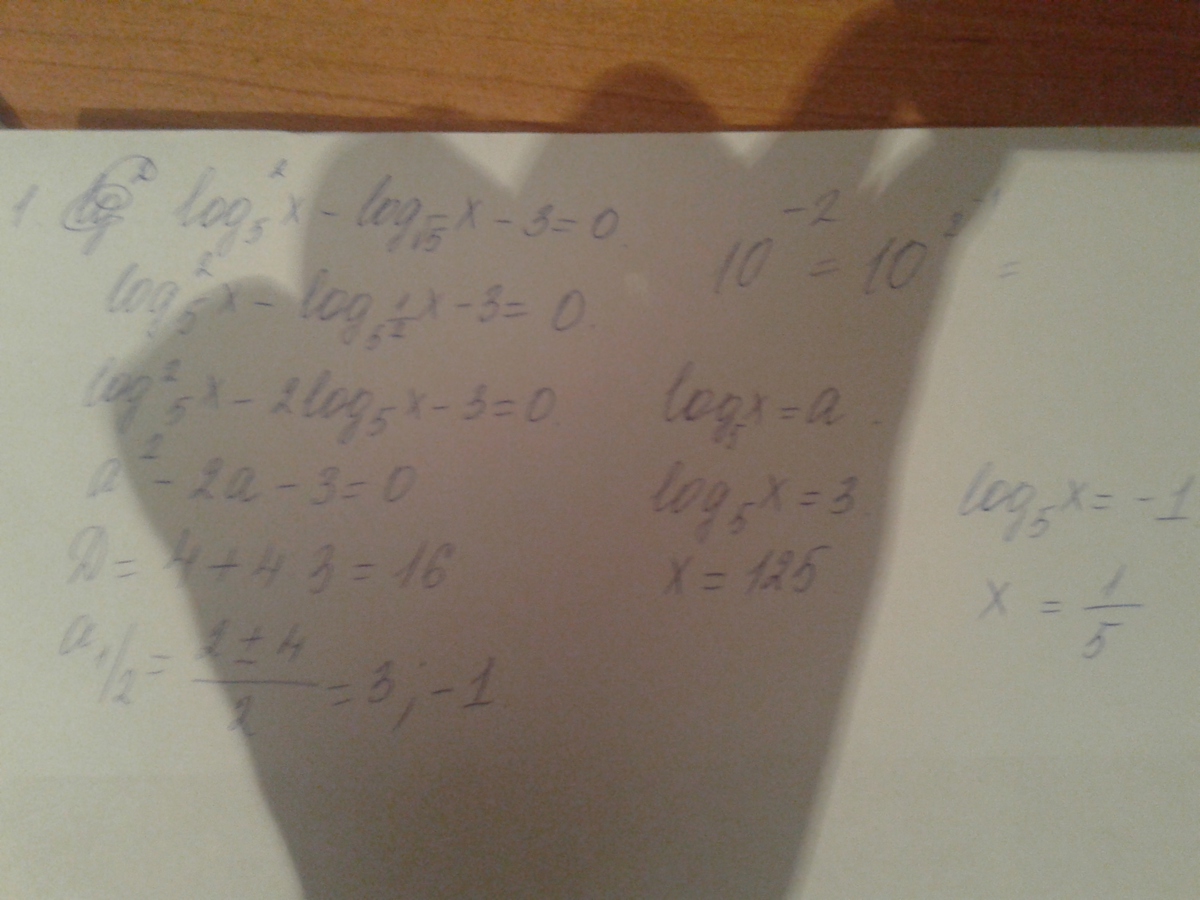 1. log₅²x - log_√5 x - 3 = 0.
log₅²x - log_5^(1/2) x - 3 = 0.
log²₅x - 2log₅x - 3 = 0.
a² - 2a - 3 = 0
D = 4 + 4 3 = 16
a₁/₂ = (2 ± 4)/2 = 3; -1
10⁻² = 10
log₅x = a.
log₅x = 3.
x = 125
log₅x = -1
x = 1/5